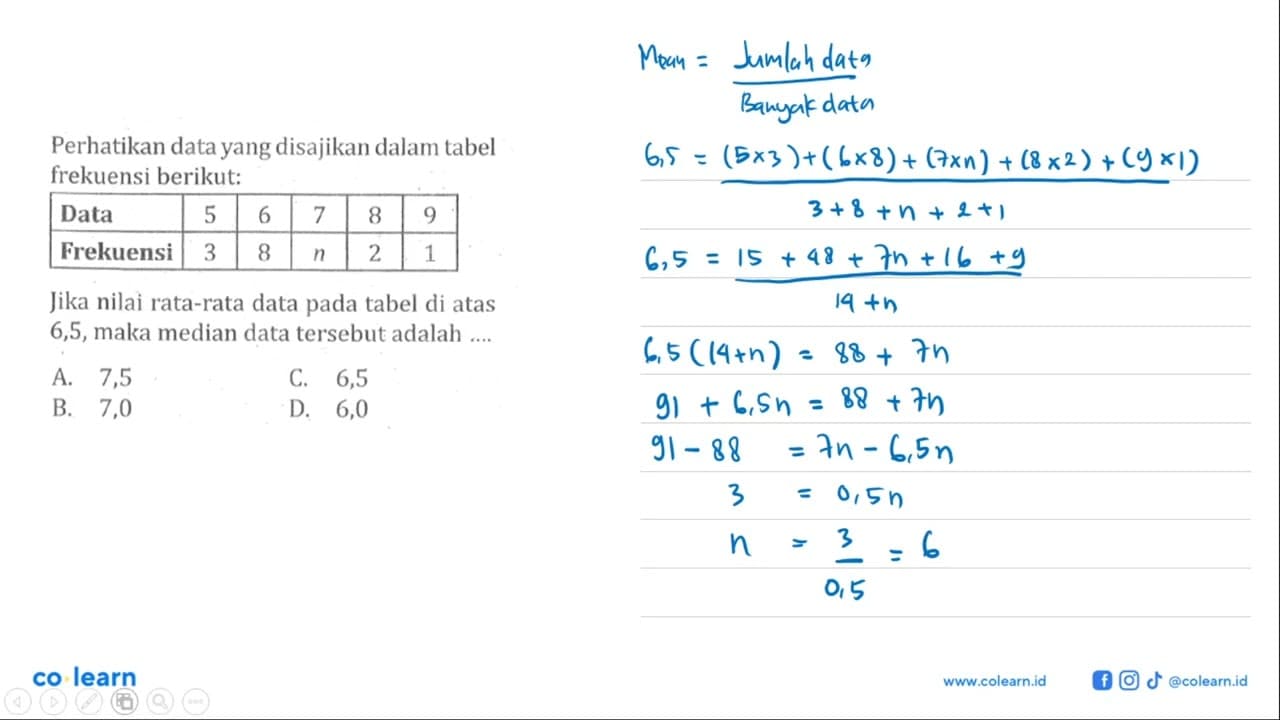 Perhatikan data yang disajikan dalam tabel
frekuensi berikut:
Data 5 6 7 8 9
Frekuensi 3 8 n 2 1
Jika nilai rata-rata data pada tabel di atas
6,5, maka median data tersebut adalah ....
A. 7,5 C. 6,5
B. 7,0 D. 6,0
Mean = Jumlah data
Banyak data
6,5 = (5×3)+(6×8)+(7×n)+(8×2)+(9×1)
3+8+n+2+1
6,5 = 15 + 48 + 7n + 16 + 9
14+n
6,5(14+n) = 88 + 7n
91 + 6,5n = 88 + 7n
91 - 88 = 7n - 6,5n
3 = 0,5n
n = 3 = 6
0,5
co learn
www.colearn.id @colearn.id